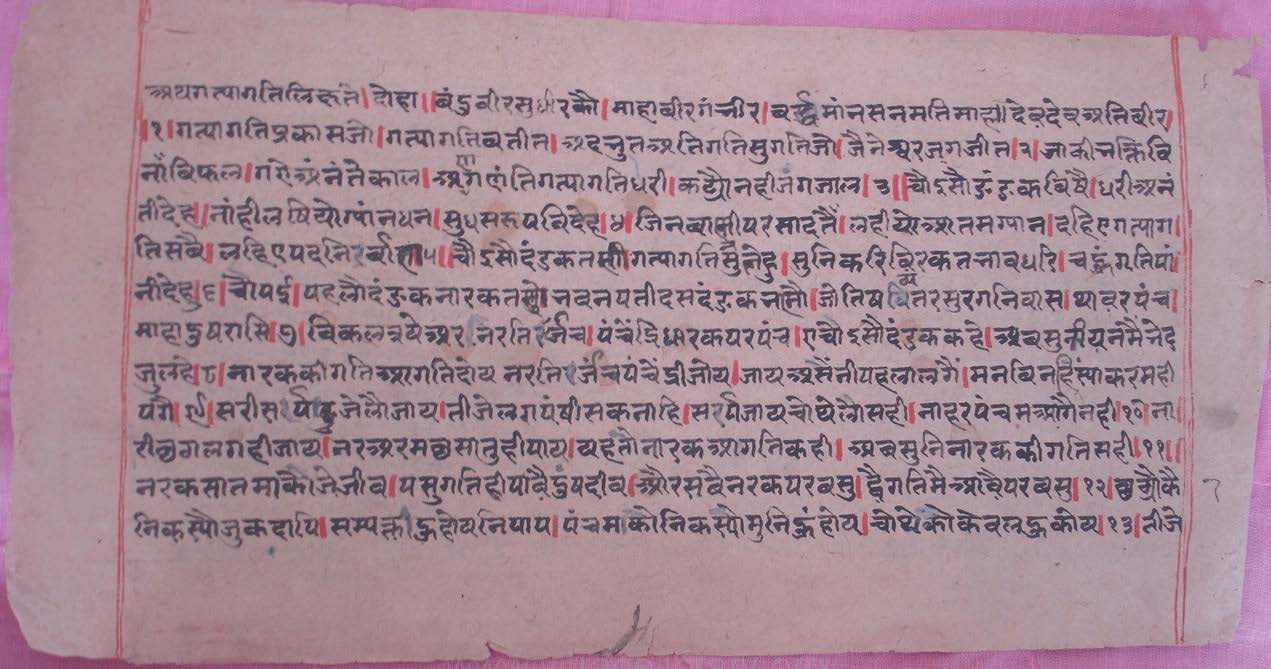 अथगत्यागतिलिष्यंते।दोहा॥बंदुवीरसुधीरकौ।माहावीरगंभीर।वर्द्धमांनसनमतिमाहा।देवदेवअतिवीर।
१।गत्यागतिप्रकासजो।गत्यागतिवतीत।अदभुतअतिगतिसुगतिजो।जैनेश्वरजगजीत।२।जाकीभक्तिवि
नांविफल।गऐअंनंतेकाल।अगणतिगत्यागतिधरी।कट्यौनहीजंगजाल।३।चौऽसौदंडकविषै।धरीअनं
तीदेह।नांहीलषियोग्यांनधन।सुधसरूपविदेह।४।जिनवानीपरसादतैं।लहीयेआतमग्यान।दहिएगत्याग
तिसबै।लहिएपदनिरवांण।५।चौऽसौदंडकतणी।गत्यागतिसुंनेहु।सुनिकरिविरकतभावधरि।चहुंगतिपां
नीदेहु।६।चौपई।पहलौदंडकनारकतणौ।भवनपतीदसदंडकभणौ।जोतिषविंतरसुरगनिवास।थावरपंच
माहादुषरासि।७।विकलत्रयेअरनरतिर्जंच।पंचेंद्रिधारकपरपंच।एचौऽसौदंडककहे।अबसुनीयनमैंभेद
जुलहे।८।नारककीगतिआगतिदोय।नरतिर्जंचपंचेंद्रीजोय।जायअसैंनीपहलालगैं।मनविनहिंस्याकरमही
पगै।९।सरीसर्पदुजेलौजाय।तीजेलगपंषीसकनाहि।सर्पजायचोथेलौसही।नाहरपंचमआगैनही।१०।ना
रीछगलगहीजाय।नरअरमछसातुहीपाय।यहतौनारकआगतिकही।अबसुनिनारककीगतिसही।११॥
नरकसातमाकौजेजीव।पसुगतिहीपावैदुषदीव।औरसबैनरकपरवसु।द्वैगतिमैआवैपरवसु।१२।छठाकै
निकस्यौजुकदापि।सम्यक्तीहुहोयनिपाप।पंचमाकोनिकस्यौमुनिहुंहोय।चोथेकौकेवलहुकोय।१३।तीजे